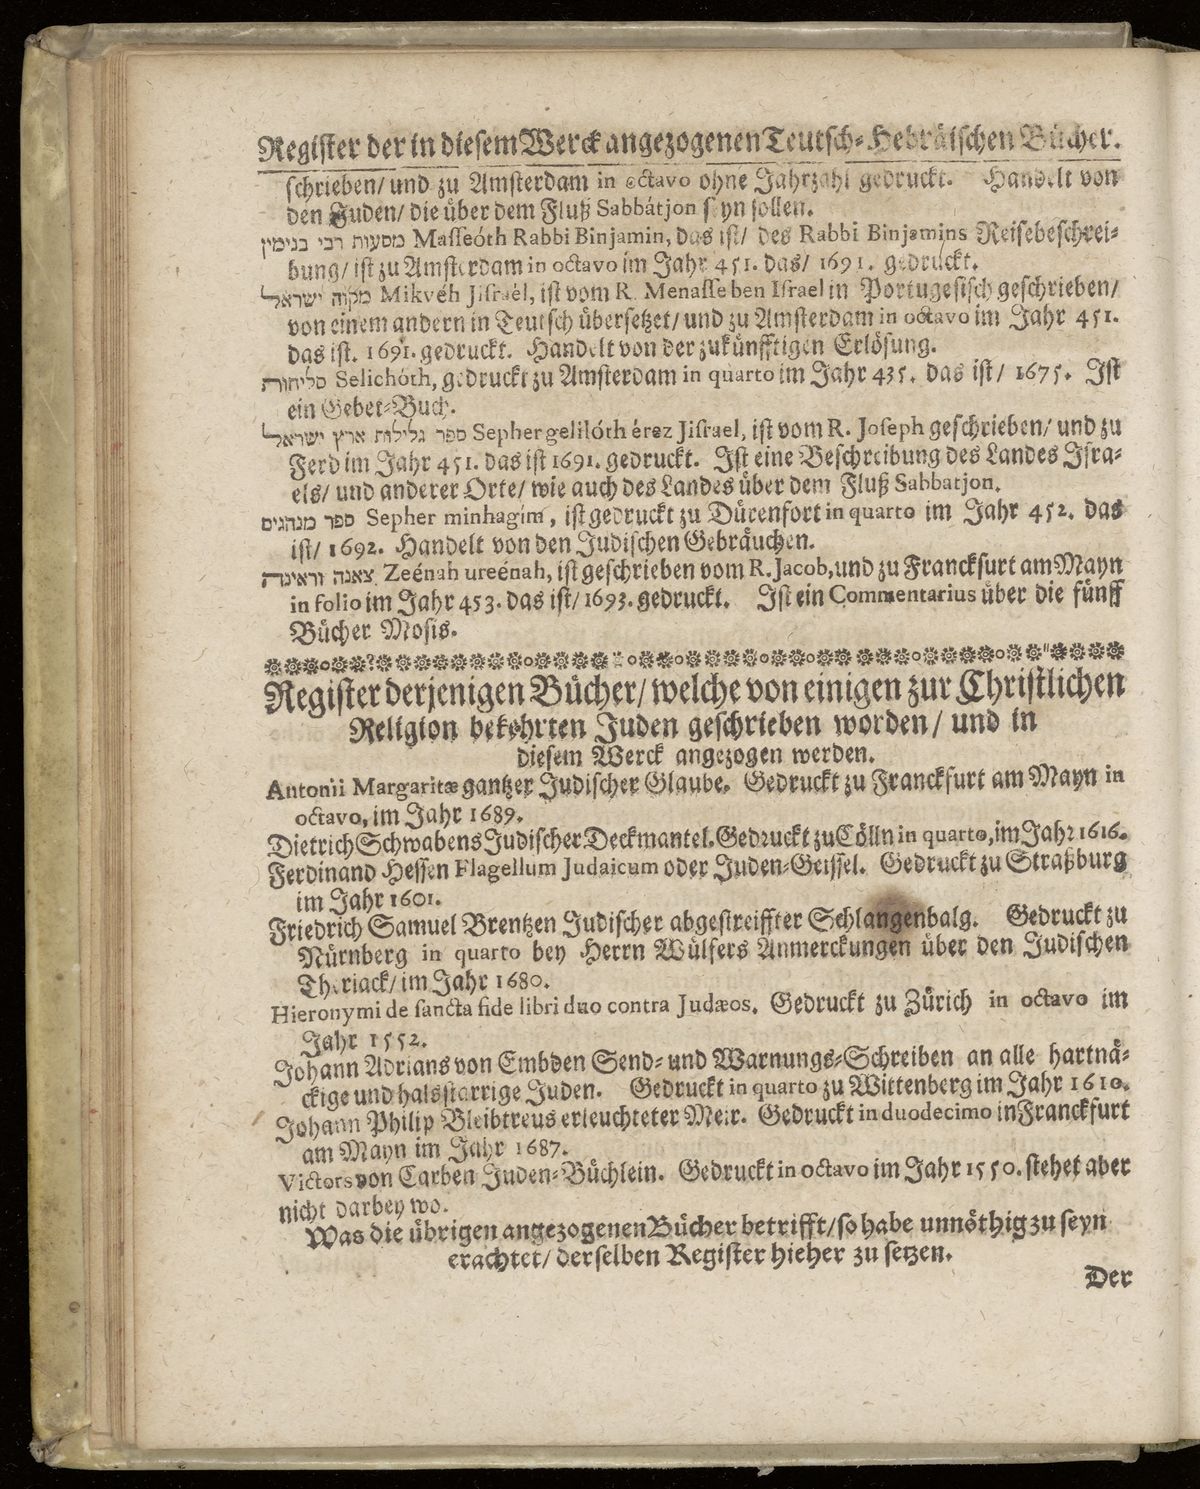 Register der in diesem Werck angezogenen Teutsch-Hebräischen Bücher.
schrieben/ und zu Amsterdam in octavo ohne Jahrzahl gedruckt. Handelt von
den Juden/ die über dem Fluß Sabbátjon seyn sollen.
מסעות רבי בנימין Masseóth Rabbi Binjamin, das ist/ des Rabbi Binjamins Reisebeschrei-
bung/ ist zu Amsterdam in octavo im Jahr 451. das/ 1691. gedruckt.
מקוה ישראל Mikvéh Jisraél, ist vom R. Menasse ben Israel in Portugesisch geschrieben/
von einem andern in Teutsch übersetzet/ und zu Amsterdam in octavo im Jahr 451.
das ist. 1691. gedruckt. Handelt von der zukünfftigen Erlösung.
סליחות Selichóth, gedruckt zu Amsterdam in quarto im Jahr 435. das ist/ 1675. Ist
ein Gebet-Buch.
ספר גלילות ארץ ישראל Sepher gelilóth érez Jisrael, ist vom R. Joseph geschrieben/ und zu
Ferd im Jahr 451. das ist 1691. gedruckt. Ist eine Beschreibung des Landes Isra-
els/ und anderer Orte/ wie auch des Landes über dem Fluß Sabbatjon.
ספר מנהגים Sepher minhagím, ist gedruckt zu Dürenfort in quarto im Jahr 452. das
ist/ 1692. Handelt von den Jüdischen Gebräuchen.
צאנה וראינה Zeénah ureénah, ist geschrieben vom R. Jacob, und zu Franckfurt am Mayn
in folio im Jahr 453. das ist/ 1693. gedruckt. Ist ein Commentarius über die fünff
Bücher Mosis.
Register derjenigen Bücher/ welche von einigen zur Christlichen
Religion bekehrten Juden geschrieben worden/ und in
diesem Werck angezogen werden.
Antonii Margaritæ gantzer Jüdischer Glaube. Gedruckt zu Franckfurt am Mayn in
octavo, im Jahr 1689.
Dietrich Schwabens Jüdischer Deckmantel. Gedruckt zu Cölln in quarto, im Jahr 1616.
Ferdinand Hessen Flagellum Judaicum oder Juden-Geissel. Gedruckt zu Straßburg
im Jahr 1601.
Friedrich Samuel Brentzen Jüdischer abgestreiffter Schlangenbalg. Gedruckt zu
Nürnberg in quarto bey Herrn Wülfers Anmerckungen über den Jüdischen
Theriack/ im Jahr 1680.
Hieronymi de sancta fide libri duo contra Judæos. Gedruckt zu Zürich in octavo im
Jahr 1552.
Johann Adrians von Embden Send- und Warnungs-Schreiben an alle hartnä-
ckige und halsstarrige Juden. Gedruckt in quarto zu Wittenberg im Jahr 1610.
Johann Philip Bleibtreus erleuchteter Meir. Gedruckt in duodecimo in Franckfurt
am Mayn im Jahr 1687.
Victors von Carben Juden-Büchlein. Gedruckt in octavo im Jahr 1550. stehet aber
nicht darbey wo.
Was die übrigen angezogenen Bücher betrifft/ so habe unnöthig zu seyn
erachtet/ derselben Register hieher zu setzen.
Der